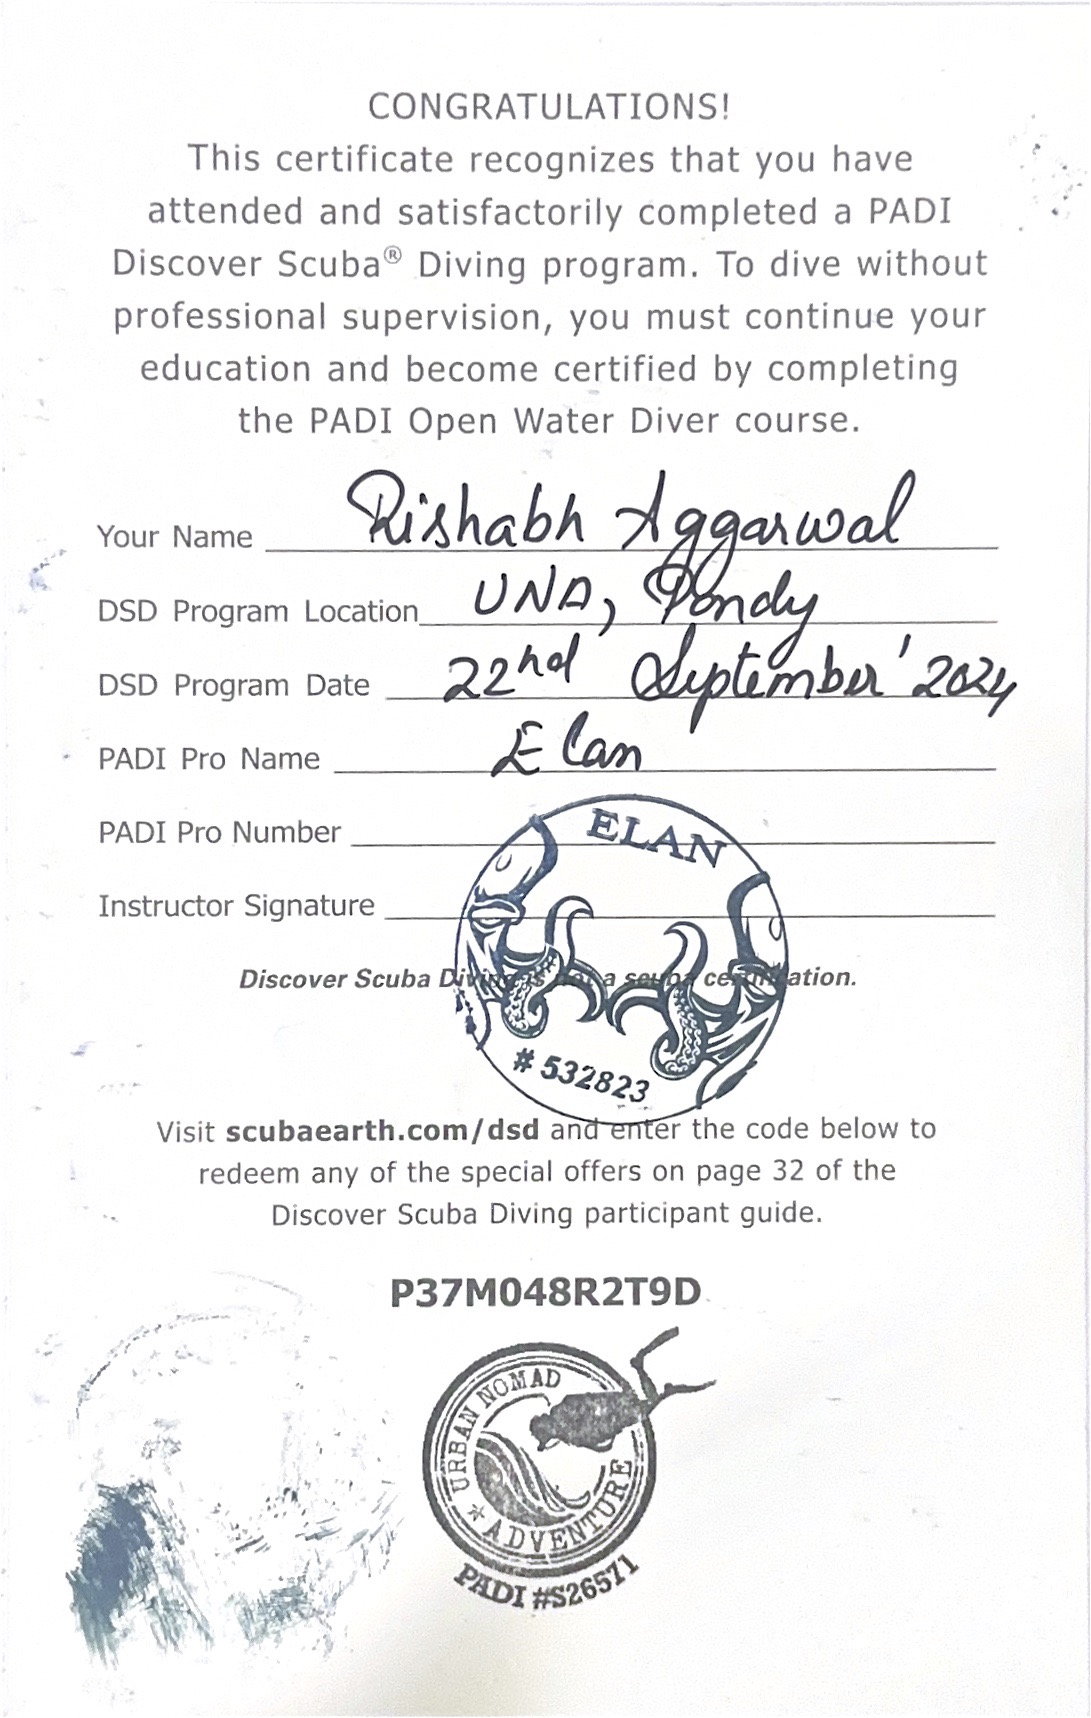 CONGRATULATIONS!
This certificate recognizes that you have
attended and satisfactorily completed a PADI
Discover Scuba® Diving program. To dive without
professional supervision, you must continue your
education and become certified by completing
the PADI Open Water Diver course.
Your Name Rishabh Aggarwal
DSD Program Location UNA, Pondy
DSD Program Date 22nd September' 2024
PADI Pro Name Elan
PADI Pro Number
ELAN
Instructor Signature
Discover Scuba Diving is not a scuba certification.
# 532823
Visit scubaearth.com/dsd and enter the code below to
redeem any of the special offers on page 32 of the
Discover Scuba Diving participant guide.
P37M048R2T9D
URBAN NOMAD
ADVENTURE
PADI #S26571